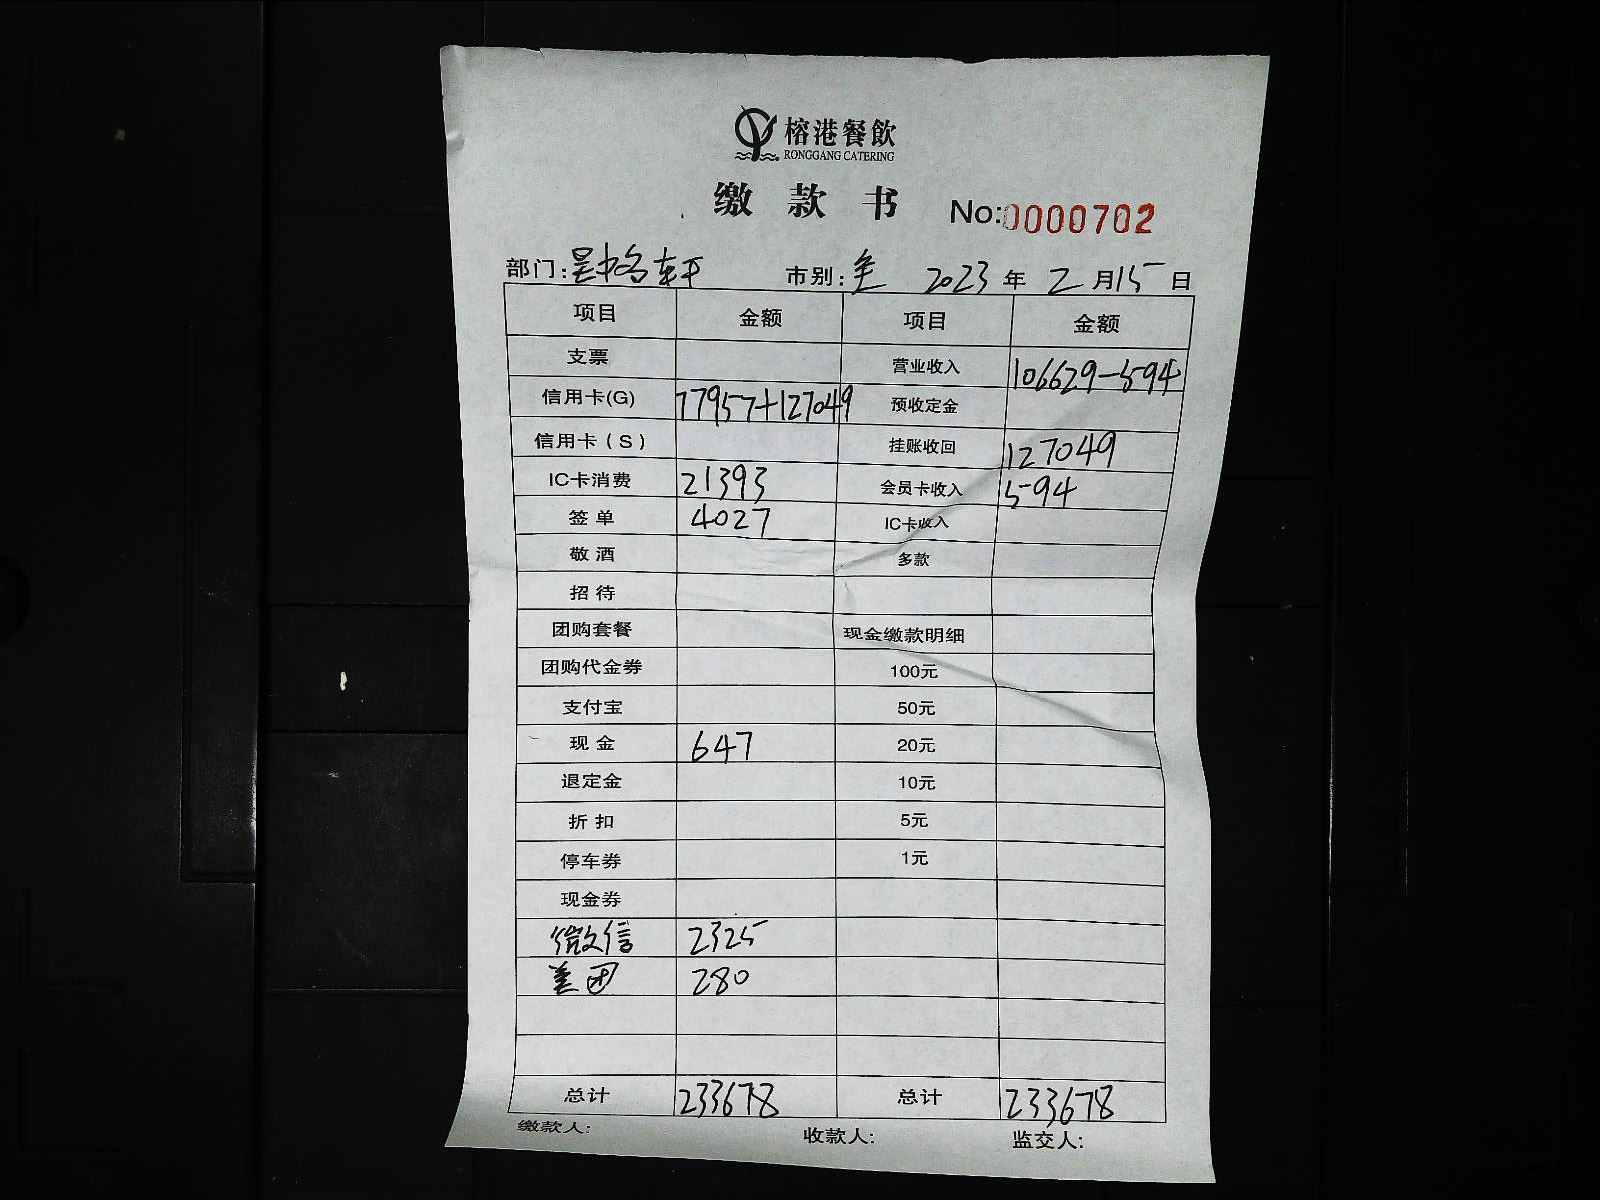 榕港餐飲
RONGGANG CATERING
缴款书 No:0000702
部门: 市别:全 2023年2月15日
项目 金额 项目 金额
支票 营业收入 106629-594
信用卡(G) 77957+127049 预收定金
信用卡(S) 挂账收回 127049
IC卡消费 21393 会员卡收入 594
签单 4027 IC卡收入
敬酒 多款
招待
团购套餐 现金缴款明细
团购代金券 100元
支付宝 50元
现金 647 20元
退定金 10元
折扣 5元
停车券 1元
现金券
微信 2325
美团 280
总计 233678 总计 233678
缴款人: 收款人: 监交人: